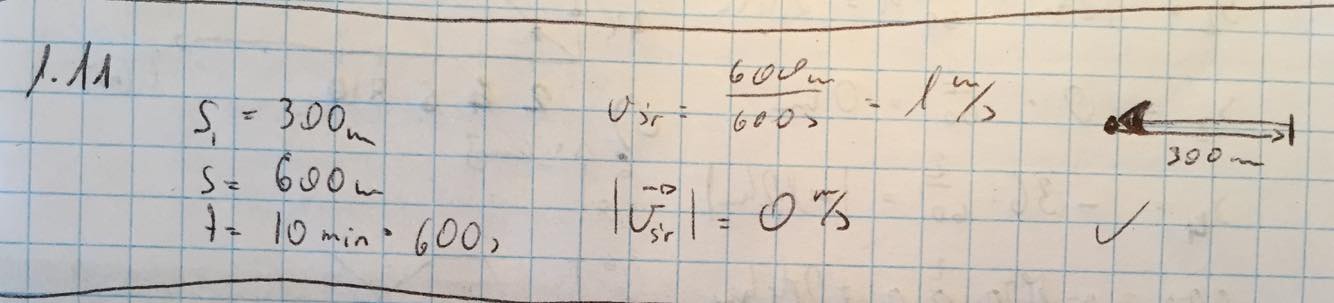 1.11
S₁ = 300m
S = 600m
t = 10 min = 600s
v śr = 600m / 600s = 1 m/s
|v⃗ śr| = 0 m/s
300m